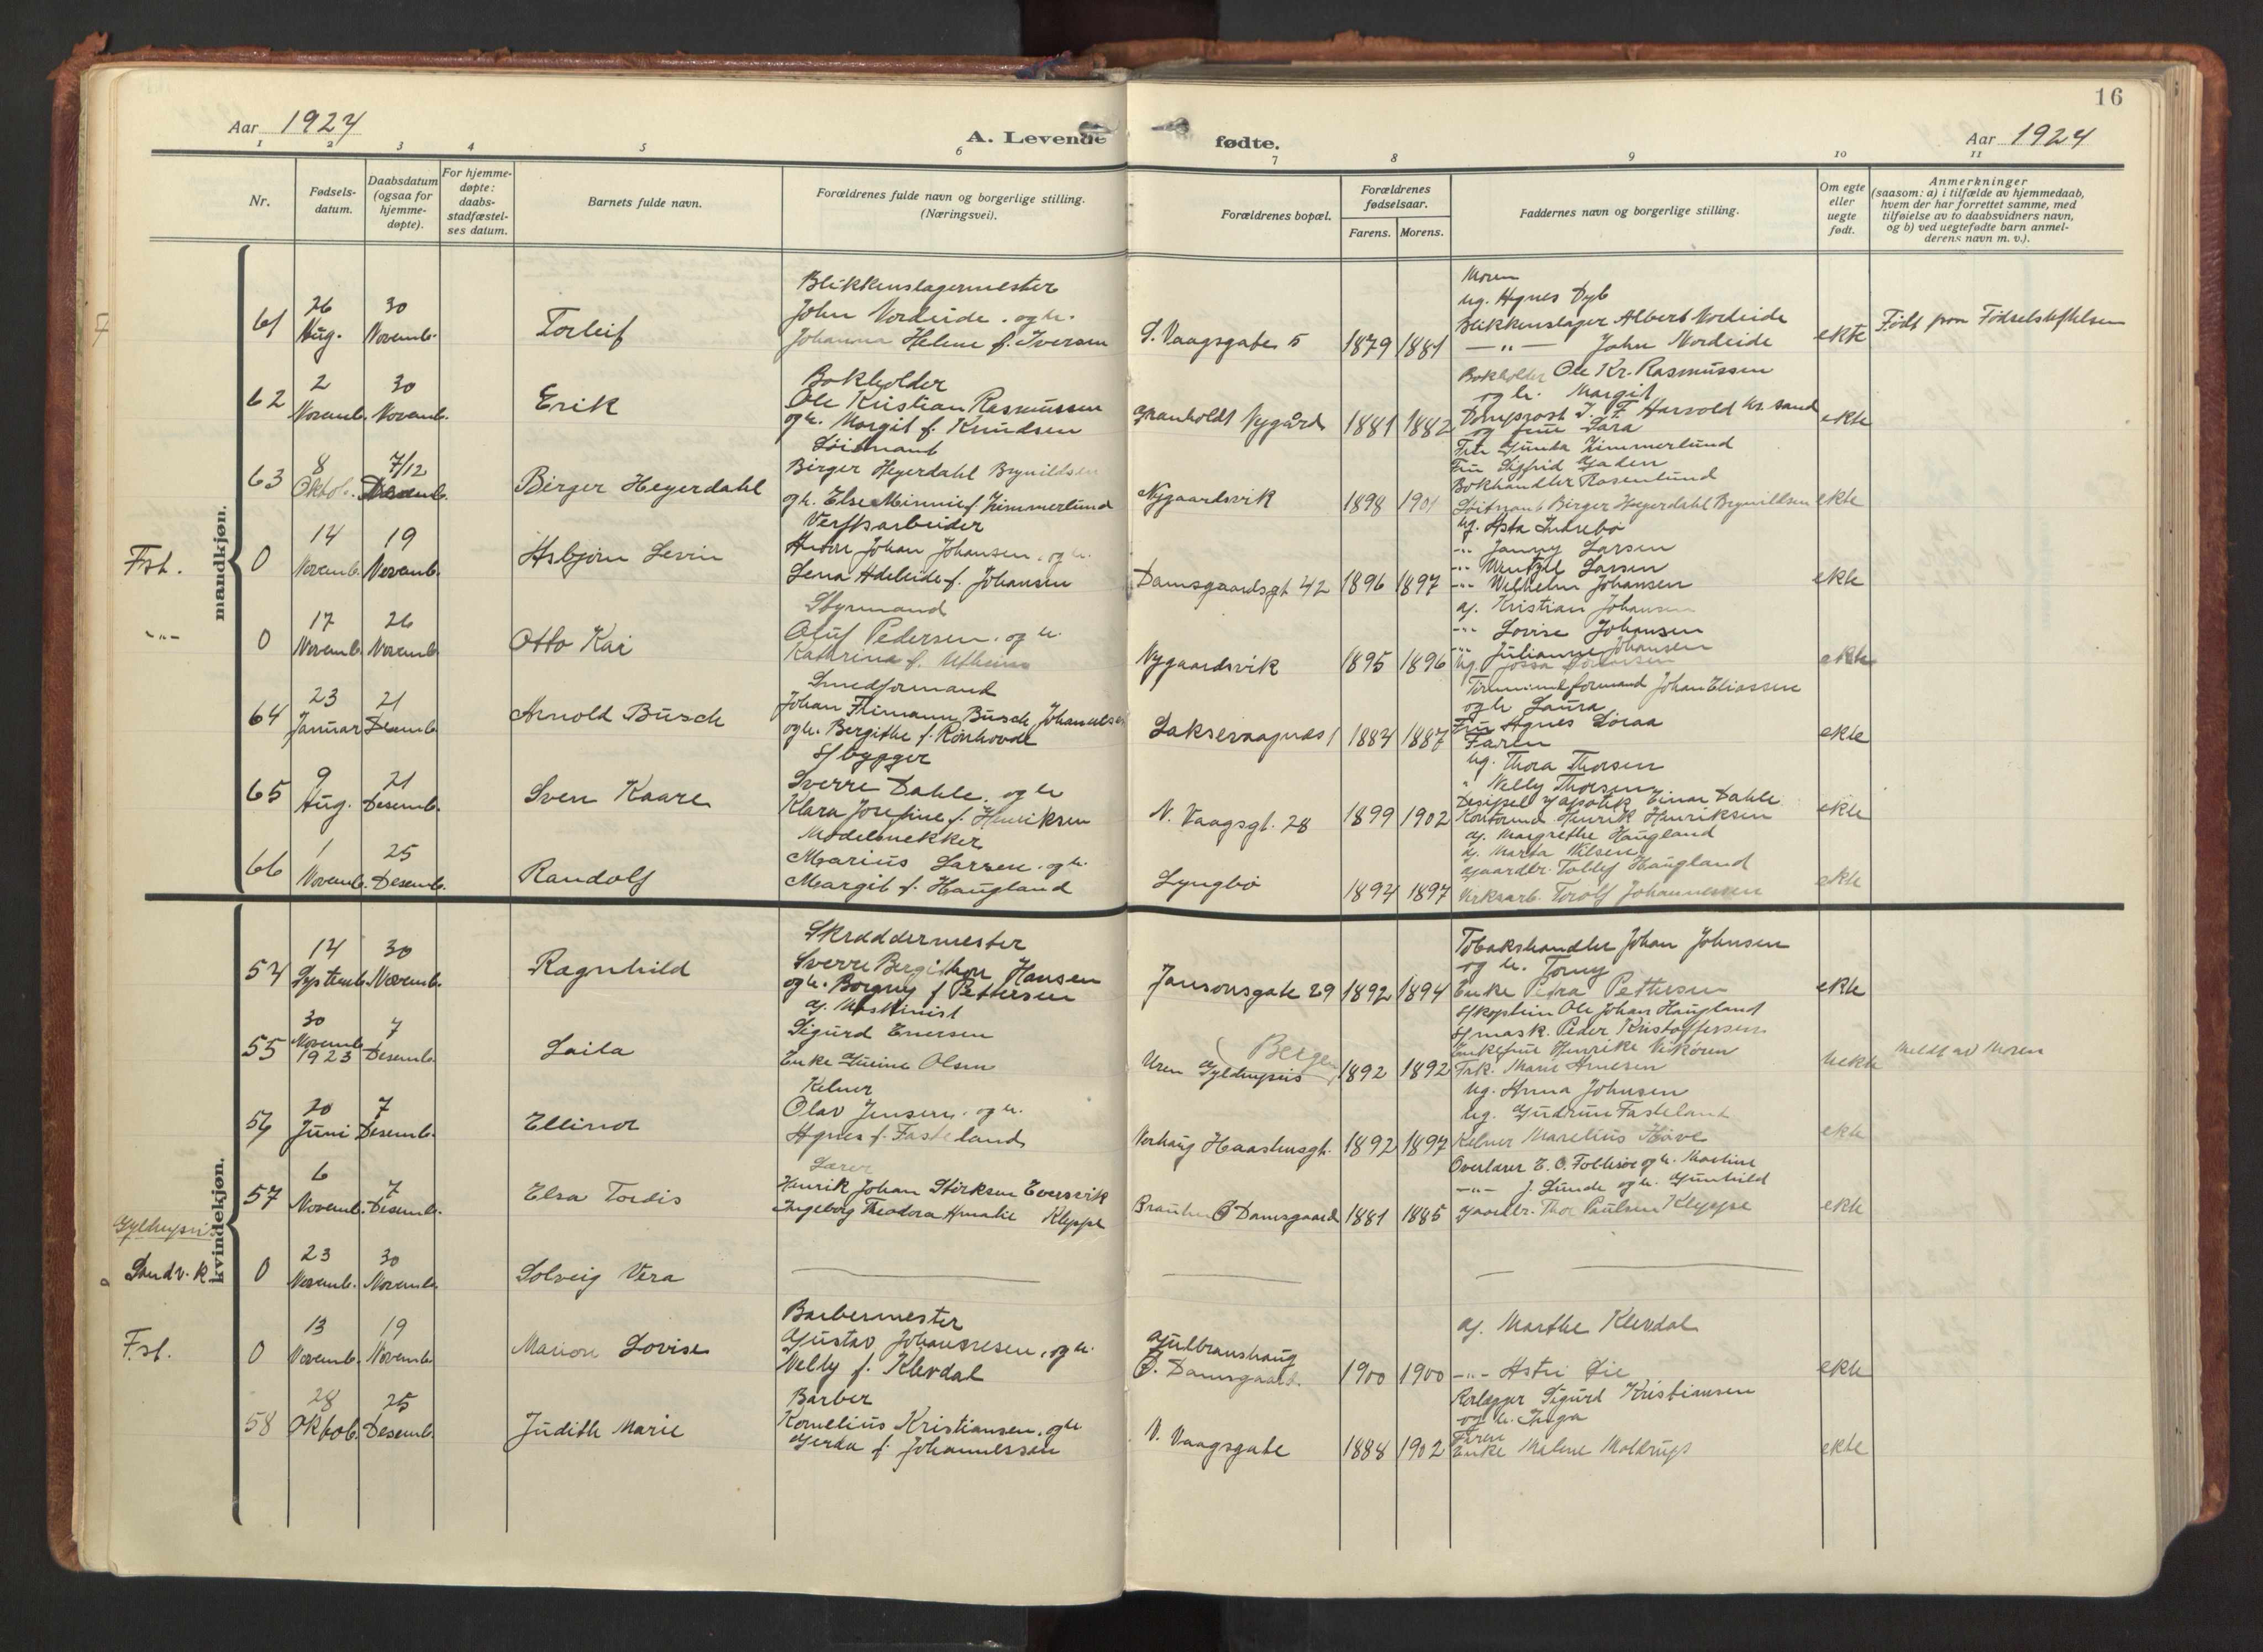 16
Aar 1924
A. Levende fødte.
Aar 1924
1 2 3 4 5 6 7 8 9 10 11
Nr.
Fødsels-
datum.
Daabsdatum
(ogsaa for
hjemme-
døpte).
For hjemme-
døpte:
daabs-
stadfæstel-
ses datum.
Barnets fulde navn.
Forældrenes fulde navn og borgerlige stilling.
(Næringsvei).
Forældrenes bopæl.
Forældrenes
fødselsaar.
Farens. Morens.
Faddernes navn og borgerlige stilling.
Om egte
eller
uegte
født.
Anmerkninger
(saasom: a) i tilfælde av hjemmedaab,
hvem der har forrettet samme, med
tilføielse av to daabsvidners navn,
og b) ved uegtefødte barn anmel-
derens navn m. v.).
mandkjøn.
61
26
Aug.
30
Novemb.
Torleif
Blikkenslagermester
John Nordeide. og h.
Johanna Helene f. Iversen
S. Vaagsgate 5
1879 1881
Moren
ug. Agnes Dyb
Blikkenslager Albert Nordeide
—"— John Nordeide
ekte
Født paa Fødselsstiftelsen
62
2
Novemb.
30
Novemb.
Erik
Bokholder
Ole Kristian Rasmussen
og h. Margit f. Knudsen
Granholdt Nygård
1881 1882
Bokholder Ole Kr. Rasmussen
og h. Margit
Domprost I. F. Harvold Kr. sand
og frue Sara
ekte
63
8
Oktob.
7/12
Desemb.
Birger Heyerdahl
Løitnant
Birger Heyerdahl Brynildsen
og h. Else Minnie f. Zimmerlund
Nygaardsvik
1898 1901
Fru Gunda Zimmerlund
Fru Sigfrid Gaden
Bokhandler Rosenlund
Løitnant Birger Heyerdahl Brynildsen
ekte
Fst.
0
14
Novemb.
19
Novemb.
Asbjørn Levin
Verftsarbeider
Andor Johan Johansen. og h.
Lena Adeleide f. Johansen
Damsgaardsgt 42
1896 1897
ug. Asta Indrebø
-"- Janny Larsen
-"- Wentzel Larsen
-"- Wilhelm Johansen
ekte
-"-
0
17
Novemb.
26
Novemb.
Otto Kai
Styrmand
Oluf Pedersen. og h.
Kathrina f.
Nygaardsvik
1895 1896
gj. Kristian Johansen
-"- Lovise Johansen
-"- Julianne Johansen
ug. Jossa
ekte
64
23
Januar
21
Desemb.
Arnold Busch
Smedformand
Johan Busch Johannesen
og h. Bergithe f. Rønhovde
Laksevaagnes 1
1884 1887
Tømmermd formand Johan Eliassen
og h Laura
Fru Agnes Loraa
Faren
ekte
65
9
Aug.
21
Desemb.
Sven Kaare
S/ bygger
Sverre Dahle. og h
Klara Josefine f. Henriksen
N. Vaagsgt. 28
1899 1902
ug. Thora Thorsen
" Nelly Thorsen
Desipel y apotek Einar Dahle
Kontormd Henrik Henriksen
ekte
66
1
Novemb.
25
Desemb.
Randolf
Modelsnekker
Marius Larsen. og h.
Margit f. Haugland
Lyngbø
1894 1897
gj. Margrethe Haugland
gj. Marta Nilsen
gaardbr. Tollef Haugland
Verksarb. Torolf Johannessen
ekte
kvindekjøn.
54
14
Septemb.
30
Novemb.
Ragnhild
Skræddermester
Sverre Bergithon Hansen
og h. Borgny f Pettersen
Jansonsgate 29
1892 1894
Tobakshandler Johan Johnsen
og h. Torny
Enke Petra Pettersen
ekte
55
30
Novemb.
1923
7
Desemb.
Laila
gj. Maskinist
Sigurd Enersen
Enke Olsen
Uren Gyldenpris
Bergen
1892 1892
S/kaptein Ole Johan Haugland
S/mask. Peder Kristoffersen
Enkefrue Henrike Vikøren
Frk. Marie Arnesen
uekte
Meldt av Moren
56
20
Juni
7
Desemb.
Ellinor
Kelner
Olav Jensen. og h.
Agnes f. Fasteland
Haastensgt.
1892 1897
ug. Anna Johnsen
ug. Gudrun Fasteland
Kelner Marelius Høve
ekte
57
6
Novemb.
7
Desemb.
Elsa Tordis
Lærer
Henrik Johan Stirksen Eversvik
Ingeborg Theodora Amalie Kleppe
Ø Damsgaard
1881 1885
Overlærer E. O. Foldesøe og h. Martine
—"— J. Lunde og h. Gunhild
gaardbr. Thor Paulsen Kleppe
ekte
Gyldenpris
Sandv. k.
0
23
Novemb.
30
Novemb.
Solveig Vera
Fst.
0
13
Novemb.
19
Novemb.
Marion Lovise
Barbermester
Gustav Johannesen. og h.
Nelly f. Klevdal
Gulbranshaug
Ø. Damsgaard.
1900 1900
gj. Marthe Klevdal
-"- Astri Lie
ekte
58
28
Oktob.
25
Desemb.
Judith Marie
Barber
Kornelius Kristiansen. og h
Gerda f. Johannessen
N. Vaagsgate
1884 1902
Rørlægger Sigurd Kristiansen
og h. Inga
Faren
Enke Malene Moldrups
ekte